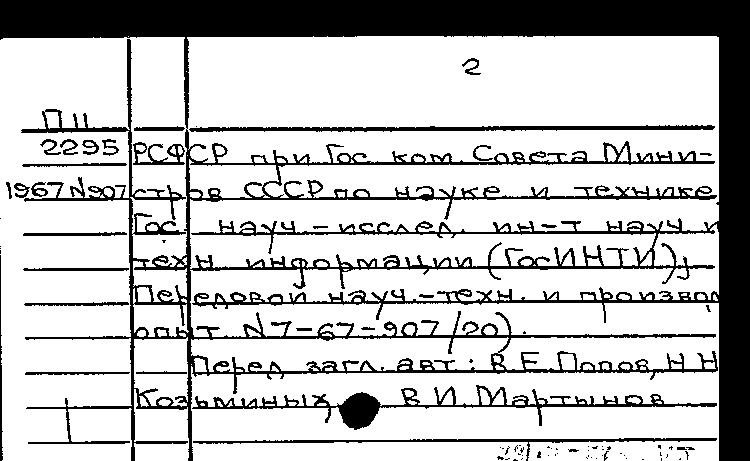 2
П 11
2295 РСФСР при Гос. ком. Совета Мини-
1967 N907 стров СССР по науке и технике.
Гос. науч.-исслед. ин-т науч и
техн информации (ГосИНТИ);
Передовой науч.-техн. и производ
опыт N7-67-907/20).
Перед загл. авт: В.Е. Попов, Н Н
Козьминых, В.И. Мартынов